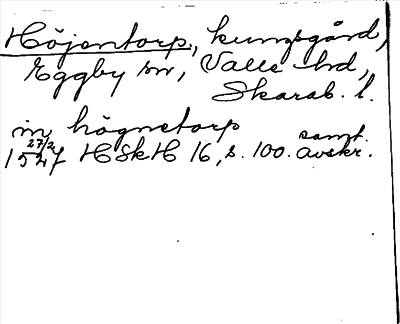 Höjentorp, kungsgård,
Eggby sn, Valle hd,
Skarab. l.
in högnetorp
27/2 samt.
1527 HSkH 16, s. 100. avskr.